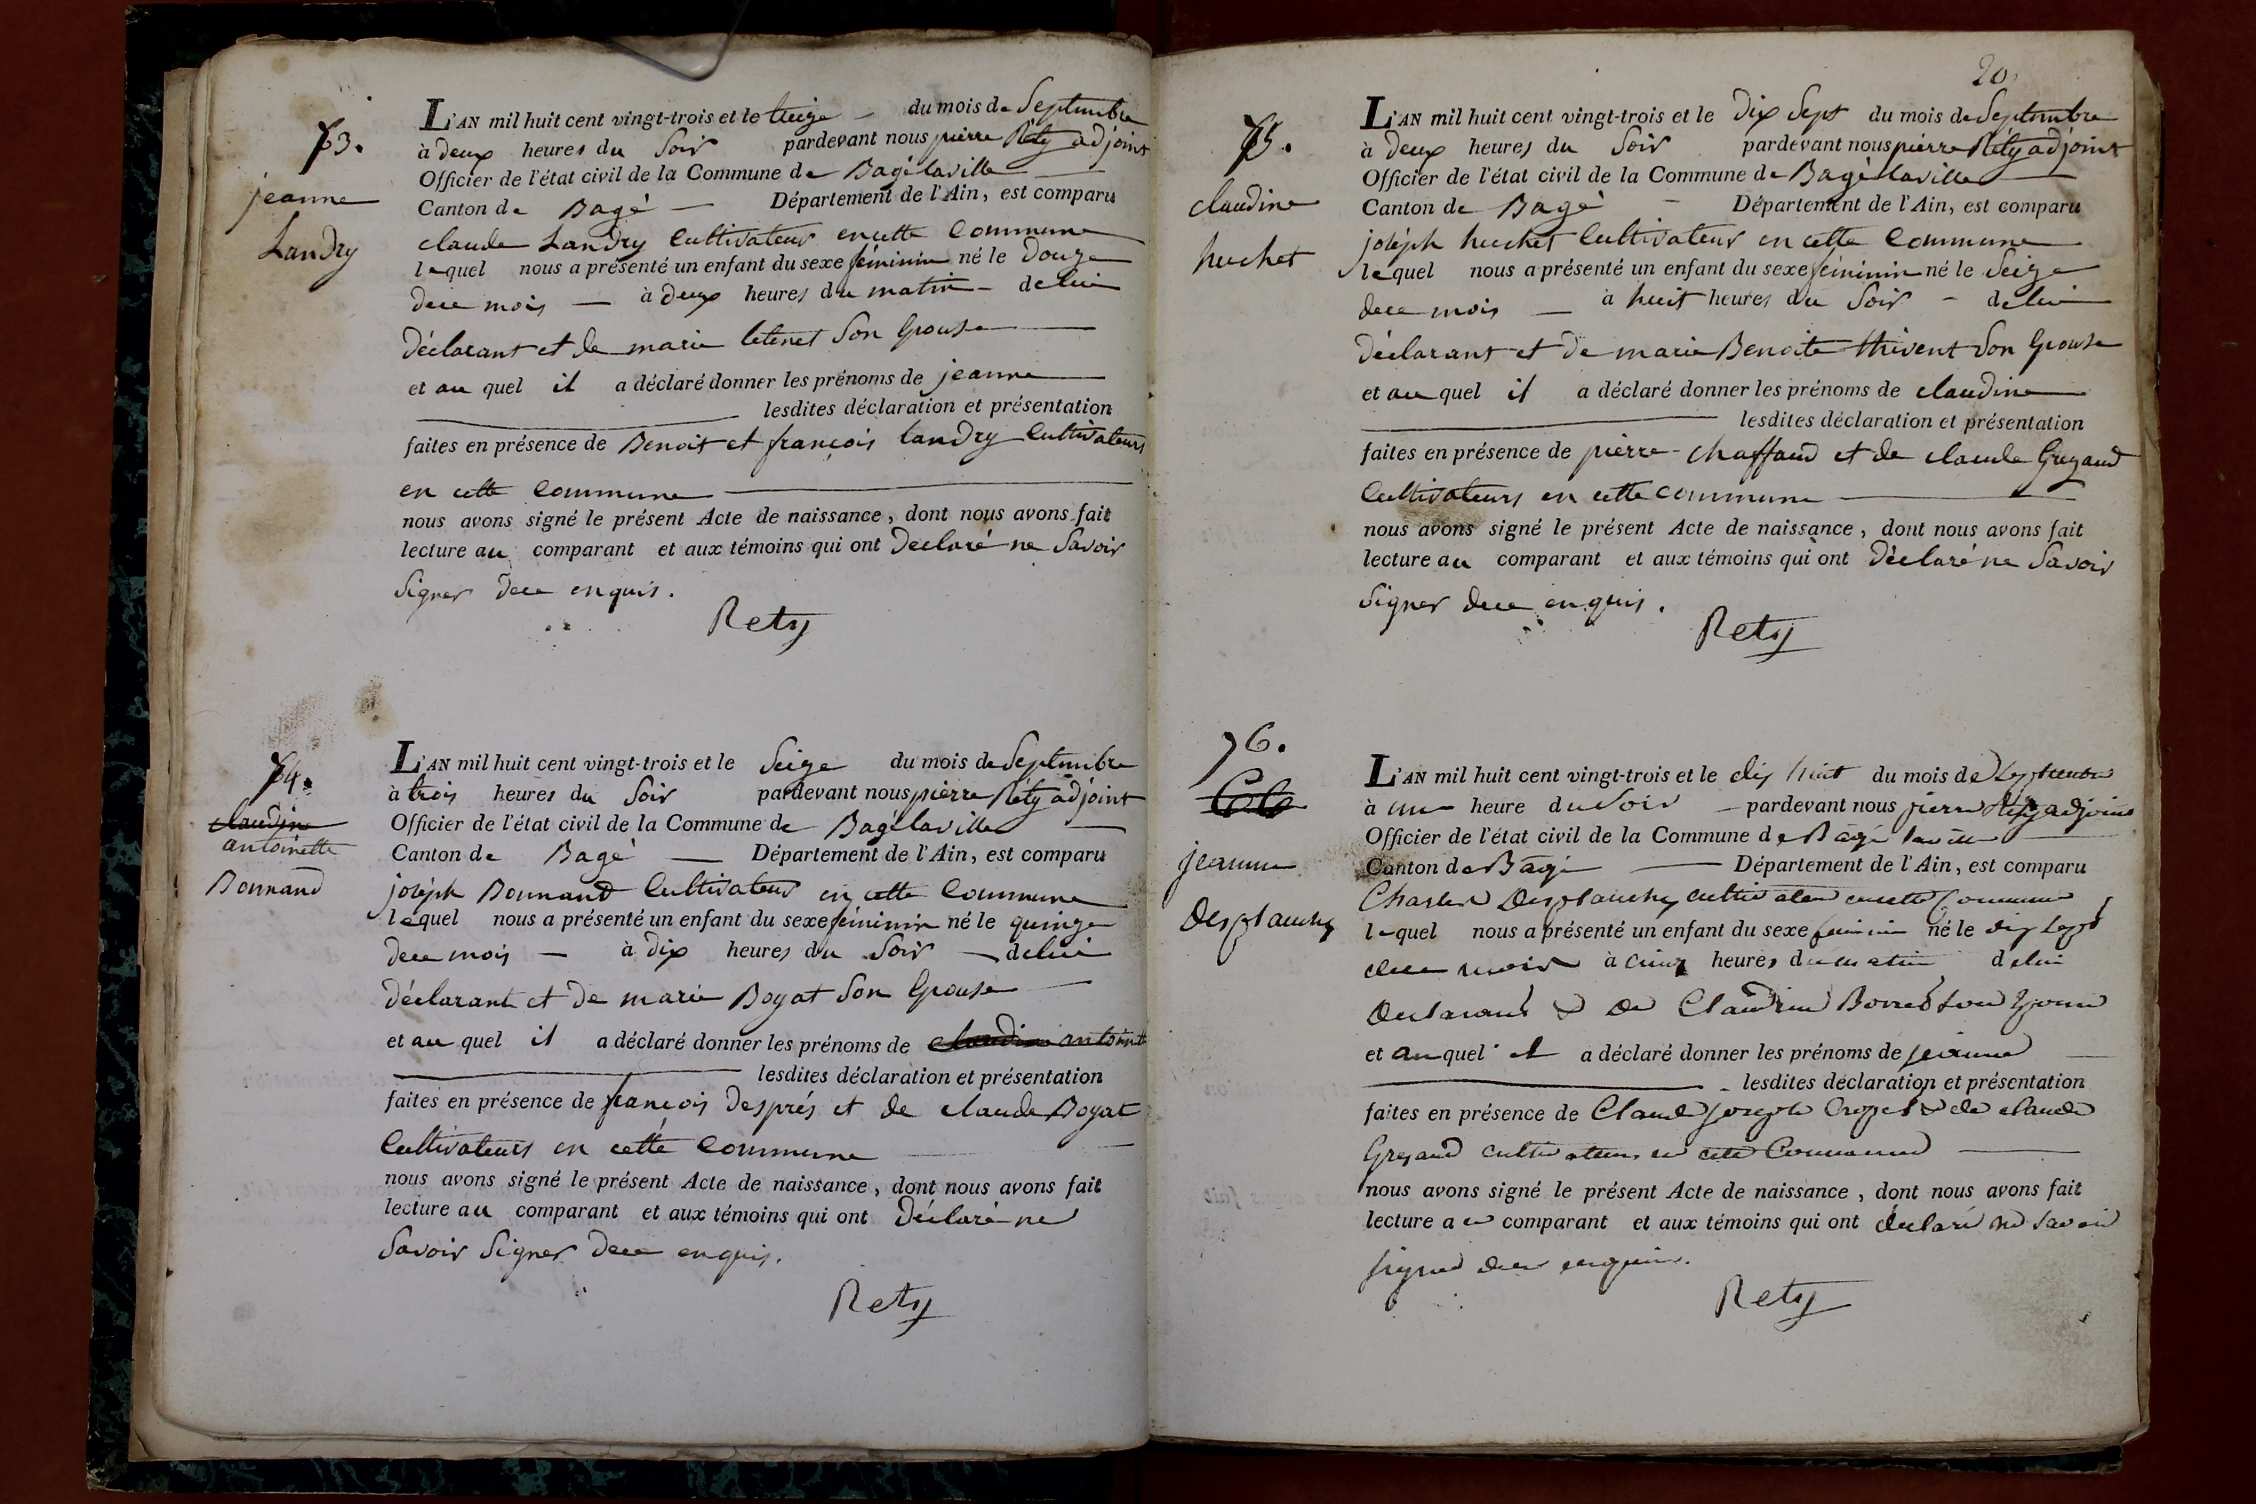 73.
jeanne
Landry
L'AN mil huit cent vingt-trois et le treize du mois de Septembre
à deux heures du Soir pardevant nous pierre Réty adjoint
Officier de l'état civil de la Commune de Bagélaville
Canton de Bagé Département de l'Ain, est comparu
claude Landry Cultivateur en cette Commune
lequel nous a présenté un enfant du sexe féminin né le Douze
dece mois à deux heures du matin delui
Déclarant et de marie son Epouse
et au quel il a déclaré donner les prénoms de jeanne
lesdites déclaration et présentation
faites en présence de Benoit et françois Landry Cultivateurs
en cette Commune
nous avons signé le présent Acte de naissance, dont nous avons fait
lecture au comparant et aux témoins qui ont Déclaré ne Savoir
Signer dece enquis.
Rety
74.
claudine
antoinette
Bonnand
L'AN mil huit cent vingt-trois et le Seize du mois de Septembre
à trois heures du Soir pardevant nous pierre Réty adjoint
Officier de l'état civil de la Commune de Bagélaville
Canton de Bagé Département de l'Ain, est comparu
joséph Bonnand Cultivateur en cette Commune
lequel nous a présenté un enfant du sexe féminin né le quinze
dece mois à dix heures du Soir delui
déclarant et de marie Boyat son Epouse
et au quel il a déclaré donner les prénoms de claudine antoinette
lesdites déclaration et présentation
faites en présence de francois Després et de claude Boyat
Cultivateurs en cette Commune
nous avons signé le présent Acte de naissance, dont nous avons fait
lecture au comparant et aux témoins qui ont Déclaré ne
Savoir Signer dece enquis.
Rety
20
75.
claudine
huchet
L'AN mil huit cent vingt-trois et le Dix Sept du mois de Septembre
à deux heures du Soir pardevant nous pierre Réty adjoint
Officier de l'état civil de la Commune de Bagélaville
Canton de Bagé Département de l'Ain, est comparu
joséph huchet Cultivateur en cette Commune
lequel nous a présenté un enfant du sexe féminin né le Seize
dece mois à huit heures du Soir delui
Déclarant et de marie Benoite thivent son Epouse
et au quel il a déclaré donner les prénoms de claudine
lesdites déclaration et présentation
faites en présence de pierre chaffaud et de claude Grezaud
Cultivateurs en cette commune
nous avons signé le présent Acte de naissance, dont nous avons fait
lecture au comparant et aux témoins qui ont Déclaré ne Savoir
Signer dece enquis.
Rety
76.
jeanne
Desplanches
L'AN mil huit cent vingt-trois et le dix huit du mois de Septembre
à une heure du Soir pardevant nous pierre Réty adjoint
Officier de l'état civil de la Commune de Bagé laville
Canton de Bagé Département de l'Ain, est comparu
Charles Desplanches cultivateur en cette Commune
lequel nous a présenté un enfant du sexe féminin né le dix Sept
dece mois à cinq heures du matin delui
Declarant & de Claudine son Epouse
et au quel il a déclaré donner les prénoms de jeanne
lesdites déclaration et présentation
faites en présence de Claude joseph & de claude
Grezaud cultivateurs en cette Commune
nous avons signé le présent Acte de naissance, dont nous avons fait
lecture au comparant et aux témoins qui ont déclaré ne savoir
signer dece enquis.
Rety